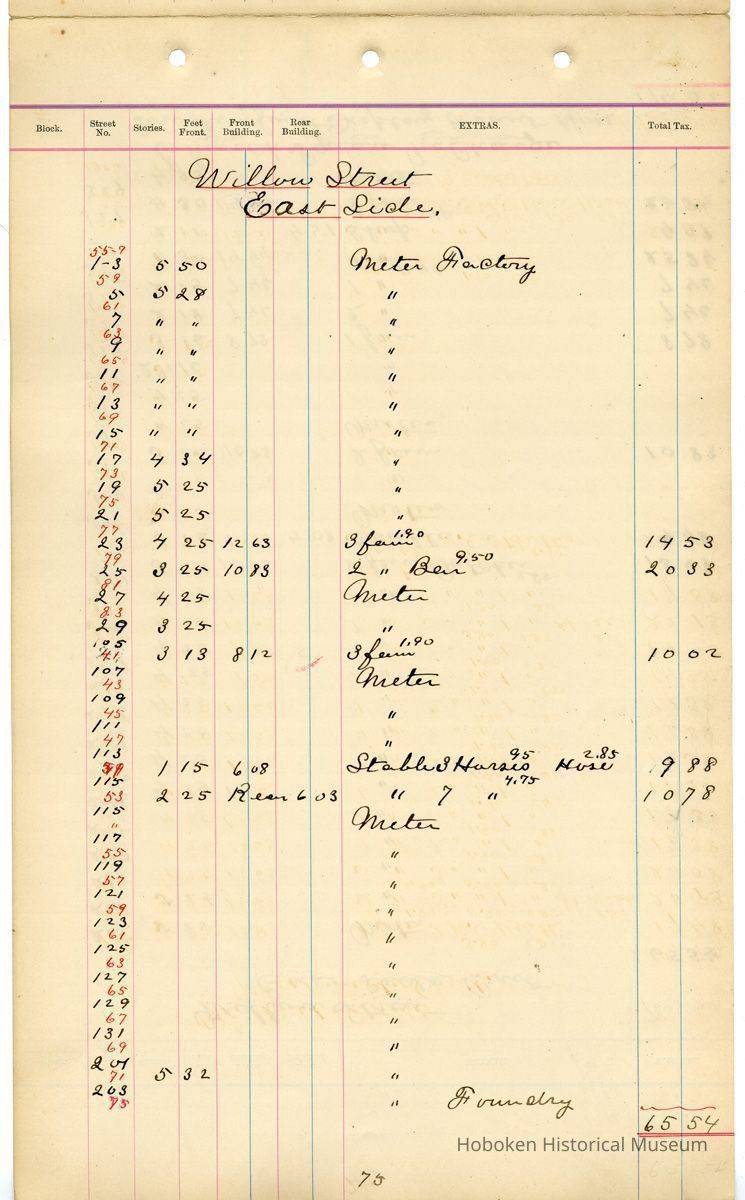 Block. Street No. Stories. Feet Front. Front Building. Rear Building. EXTRAS. Total Tax.
Willow Street
East Side.
55-7
1-3 5 50 Meter Factory
59
5 5 28 "
61
7 " " "
63
9 " " "
65
11 " " "
67
13 " " "
69
15 " " "
71
17 4 34 "
73
19 5 25 "
75
21 5 25 "
77
23 4 25 12 63 3 fam 1.90 14 53
79
25 3 25 10 83 2 " Ber 9.50 20 33
81
27 4 25 Meter
83
29 3 25 "
105
41 3 13 8 12 3 fam 1.90 10 02
107 Meter
43
109
45 "
111
47 "
113
1 15 6 08 Stable 3 Horses 95 Hose 2.85 9 88
115
53 2 25 Rear 6 03 " 7 " 4.75 10 78
115 Meter
"
117
55 "
119
57 "
121
59 "
123
61 "
125
63 "
127
65 "
129
67 "
131
69 "
201
71 5 32 "
203
75 " Foundry
65 54
Hoboken Historical Museum
75